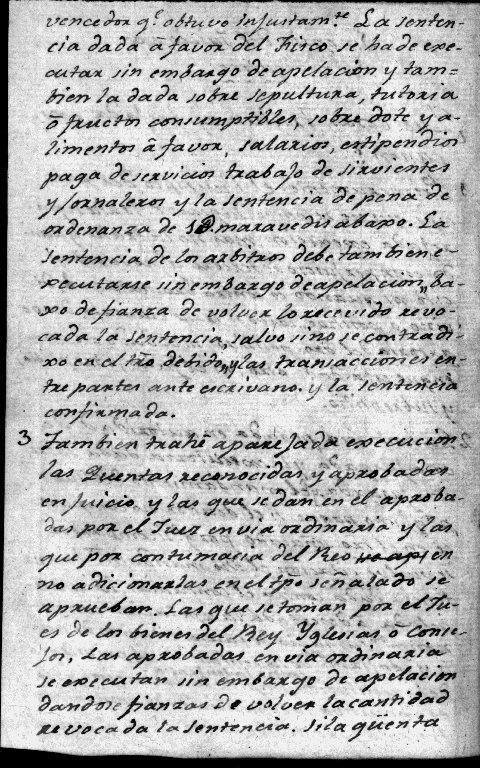 vencedor q.e obtuvo injustam.te La senten-
cia dada â favor del Fisco se ha de exe-
cutar sin embargo de apelacion y tam=
bien la dada sobre sepultura, tutoria
ô fructos consumptibles, sobre dote y a-
limentos â favor, salarios, estipendios
paga de servicios trabajo de sirvientes
y Jornaleros y la sentencia de pena de
ordenanza de maravedis abaxo. La
sentencia de los arbitros debe tambien e-
xecutarse sin embargo de apelacion, ba-
xo de fianza de volver lo recevido revo-
cada la sentencia, salvo sino se contradi-
xo en el tño debido, y las transacciones en-
tre partes ante escrivano. y la sentencia
confirmada.
3 Tambien trahê aparejada execucion
las Quentas reconocidas y aprobadas
en Juicio y las que se dan en el aproba-
das por el Juez en via ordinaria y las
que por contumacia del Reo en
no adicionarlas en el tpo señalado se
aprueban. Las que se toman por el Ju-
es de los bienes del Rey Yglesias ô Conse-
Jos. Las aprobadas en via ordinaria
se executan sin embargo de apelacion
dandose fianzas de volver la cantidad
revocada la sentencia. si la qüenta